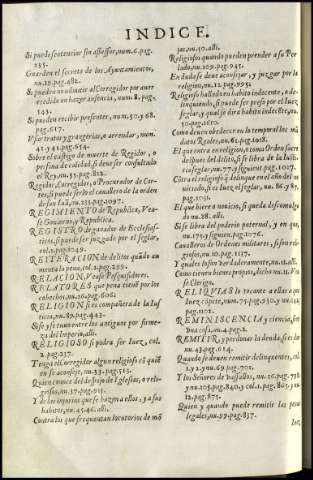 INDICE.
Si puede sentenciar sin assessor, num. 6. pag.
235.
Guarden el secreto de los Ayuntamientos,
nu. 19. pag. 482.
Si pueden no admitir al Corregidor por auer
excedido en hazer ausencia, num. 8. pag.
143.
Si pueden recibir presentes, num. 50. y 68.
pag. 617.
Vsar tratos y grangerias, o arrendar, num.
41. y 42. 654.
Sobre el castigo de muerte de Regidor, o
persona de calidad, si deve ser consultado
el Rey, nu. 35. pag. 822.
Regidor, Corregidor, o Procurador de Cor-
tes, si puede ser lo el cauallero de la orden
de san Iuã, nu. 235. pag. 1097.
REGIMIENTO de Republica, Vea-
se Gouierno, y Republica.
REGISTRO de gastador de Ecclesias-
ticos, si puede ser juzgado por el seglar,
col. 2. pag. 1049.
REITERACION de delitos quãdo au-
menta la pena, col. 2. pag. 299.
RELACION, Vease Pesquisidores.
RELATORES que pena tienen por los
cohechos, nu. 16. pag. 606.
RELIGION si es compañera de la Iu-
sticia, nu. 89. pag. 443.
Si se sustentaron los antiguos por firme-
za del Imperio, alli.
RELIGIOSO si podra ser Iuez, col.
2. pag. 237.
Tenga el Corregidor algun religioso cõ quiẽ
en se aconseje, nu. 23. pag. 513.
Quien conoce del despojo de Iglesias, o reli-
giosos, nu. 37. pag. 911.
Y de las injurias que se hazen a ellos, y a sus
habitos, nu. 45. 46. alli.
Contra los que frequentan locutorios de mõ
jas, nu. 50. alli.
Religiosos quando pueden prender a su Per
lado, nu. 109. pag. 945.
En duda se deve aconsejar, y juzgar por la
religion, nu. 12. pag. 995.
Religioso hallado en habito indecente, o de-
linquiendo, si puede ser preso por el Iuez
seglar, y qual se dira habito indecẽte, nu.
10. pag. 1010.
Como deuen obedecer en lo temporal los mã
datos Reales, nu. 61. pag. 1018.
El que entra en religion, o toma Orden sacro
despues del delito, si se libra de la iusti-
cia seglar, nu. 77. y siguient. pag. 1027.
Otra si religioso y delinque en el año del no
uiciado, si es Iuez el seglar, nu. 86. y 87.
pag. 1031.
El que buelve a nouicio, si queda desemulga
do nu. 28. alli.
Si se libra del poderio paternal, y en que,
nu. 175. y siguen. pag. 1075.
Caualleros de Ordenes militares, si son reli-
giosos, nu. 10. pag. 1137.
Y quales lo son verdaderamente, nu. 11. alli.
Como tienen bienes proprios, dicho nu. 11. Vea
se Clerigo.
RELIQVIAS si tocante a ellas a que
Iuez compete, num. 75. pag. 930. y nu. 142.
pag. 960.
REMINISCENCIA y ciencia, son
vna cosa, nu. 4. pag. 2.
REMITIR, y perdonar la deuda, si es dar
nu. 43. pag. 614.
Quando se deuen remitir delinquentes, col.
1. y 2. y nu. 69. pag. 701.
Y los Señores de vassallos, nu. 16. col. pag. 778.
y nu. 105. pag. 840. y col. 1. pag. 863. y nu.
12. pag. 875.
Quien y quando puede remitir las penas
legales, nu. 39. pag. 837.